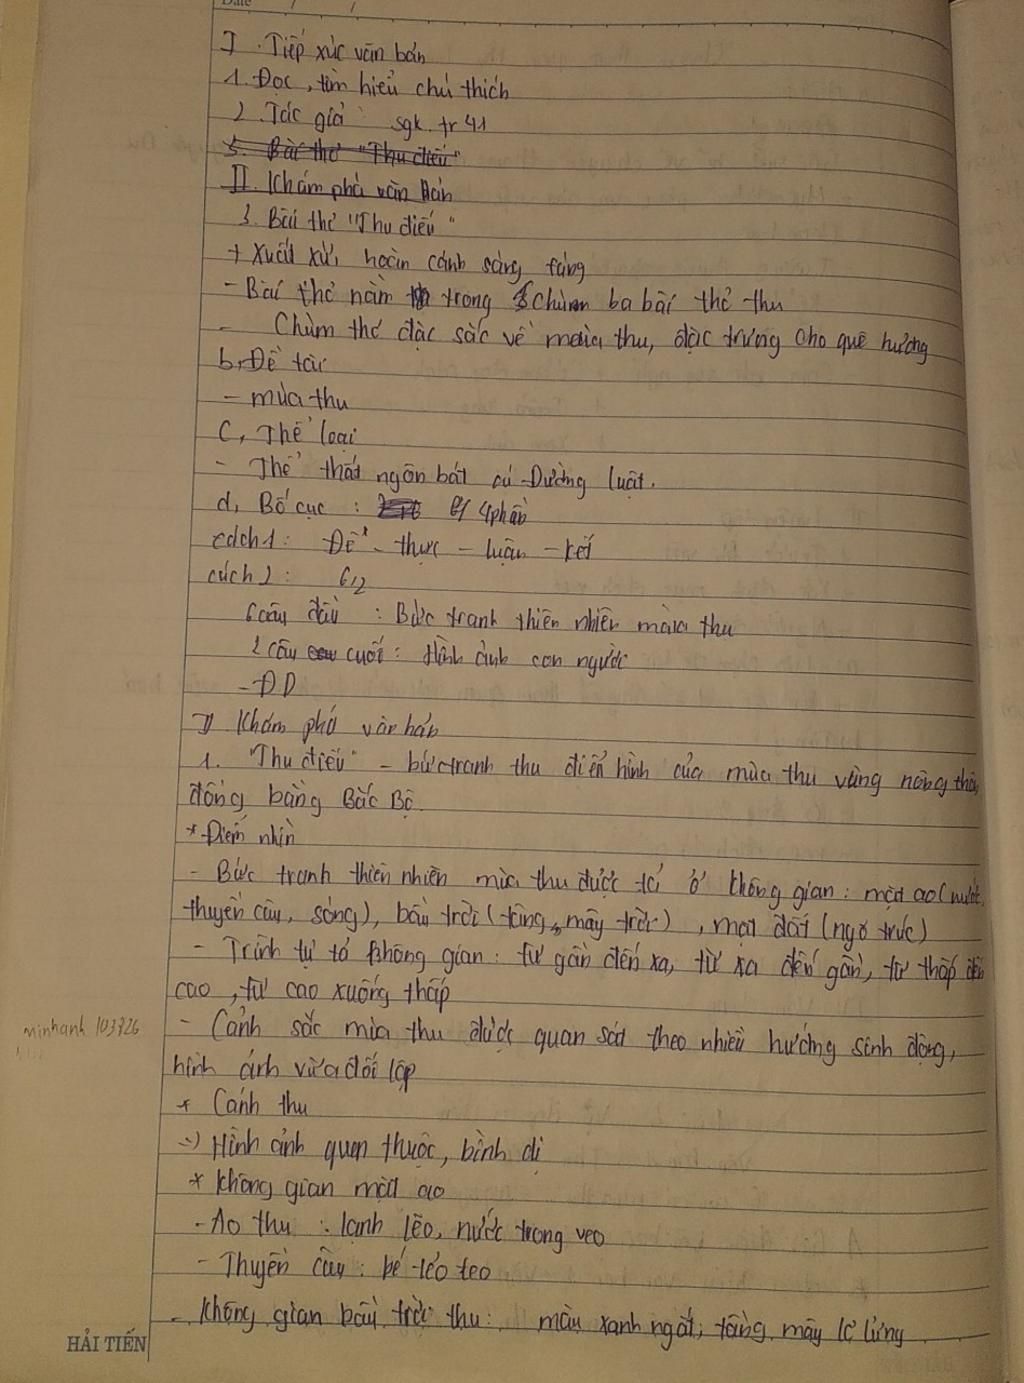 Date / /
I. Tiếp xúc văn bản
1. Đọc, tìm hiểu chú thích
2. Tác giả sgk. tr 41
3. Bài thơ "Thu điếu"
II. Khám phá văn bản
3. Bài thơ "Thu điếu"
+ Xuất xứ, hoàn cảnh sáng táng
- Bài thơ nằm trong chùm ba bài thơ thu
- Chùm thơ đặc sắc về mùa thu, đặc trưng cho quê hương
b, Đề tài
- mùa thu
C, Thể loại
- Thể thất ngôn bát cú Đường luật.
d, Bố cục : 4 phần
cách 1: Đề - thực - luận - kết
cách 2: 6/2
6 câu đầu : Bức tranh thiên nhiên mùa thu
2 câu cuối : Hình ảnh con người
- ĐD
II Khám phá văn bản
1. "Thu điếu" - bức tranh thu điển hình của mùa thu vùng nông thôn
đồng bằng Bắc Bộ.
* Điểm nhìn
- Bức tranh thiên nhiên mùa thu được tả ở không gian: mặt ao (nước,
thuyền câu, sóng), bầu trời (tầng mây trời), mặt đất (ngõ trúc)
- Trình tự tả không gian: từ gần đến xa, từ xa đến gần, từ thấp đến
cao, từ cao xuống thấp
minhanh 103726
- Cảnh sắc mùa thu được quan sát theo nhiều hướng sinh động,
hình ảnh vừa đối lập
* Cảnh thu
=> Hình ảnh quen thuộc, bình dị
* Không gian mặt ao
- Ao thu : lạnh lẽo, nước trong veo
- Thuyền câu : bé tẻo teo
- Không gian bầu trời thu : màu xanh ngắt, tầng mây lơ lửng
HẢI TIẾN